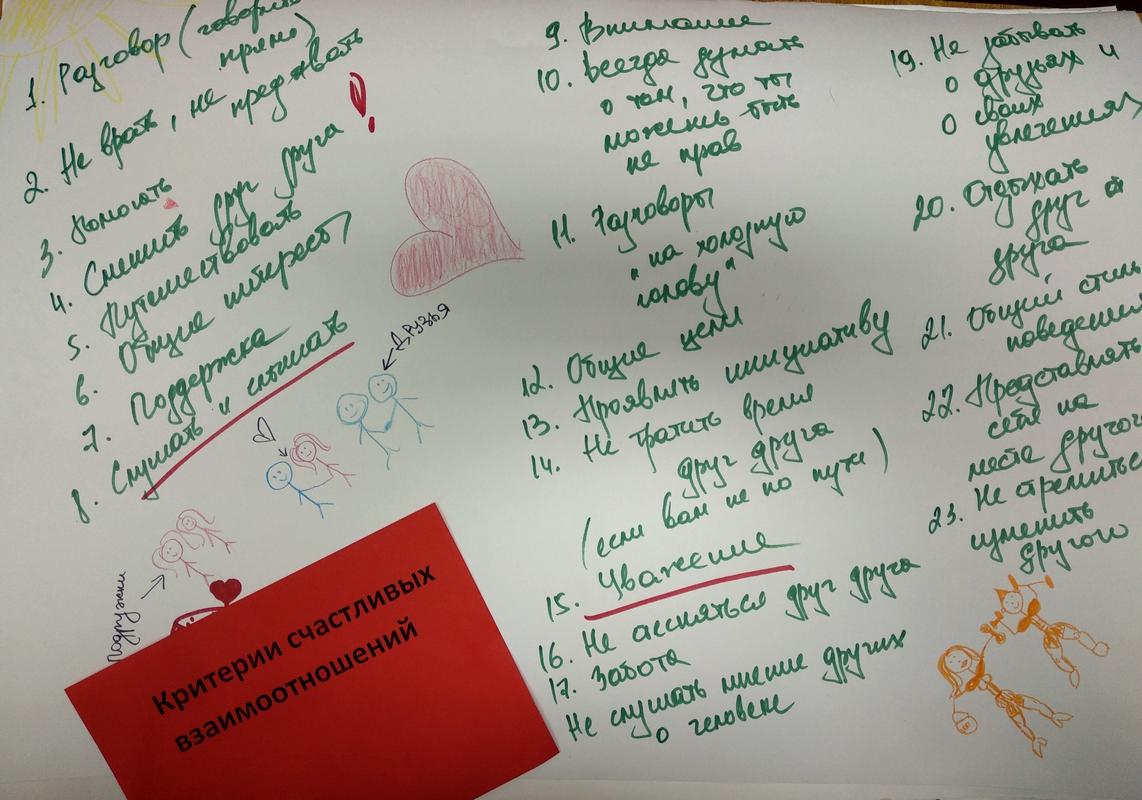 1. Разговор (говорить
прямо)
2. Не врать, не
предавать
3. Помогать
4. Смешить друг друга
5. Путешествовать
6. Общие интересы
7. Поддержка
8. Слушать и слышать
Друзья
Подружки
Критерии счастливых
взаимоотношений
9. Внимание
10. Всегда думать
о том, что ты
можешь быть
не прав
11. Разговоры
"на холодную
голову"
12. Общие цели
13. Проявлять инициативу
14. Не тратить время
друг друга
(если вам не по пути)
15. Уважение
16. Не стесняться друг друга
17. Забота
Не слушать мнение других
о человеке
19. Не забывать
о друзьях и
о своих
увлечениях
20. Отдыхать
друг от
друга
21. Общий стиль
поведения
22. Представлять
себя на
месте другого
23. Не стремиться
изменить
другого